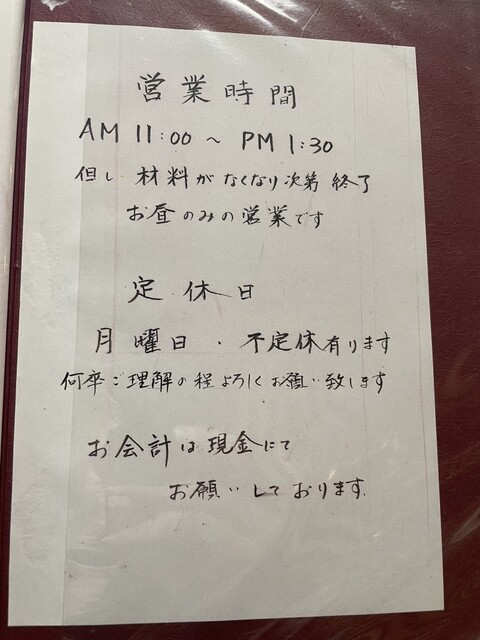 営業時間
AM 11:00 ~ PM 1:30
但し 材料がなくなり次第 終了
お昼のみの営業です
定休日
月曜日 ・ 不定休有ります
何卒ご理解の程よろしくお願い致します
お会計は現金にて
お願いしております。